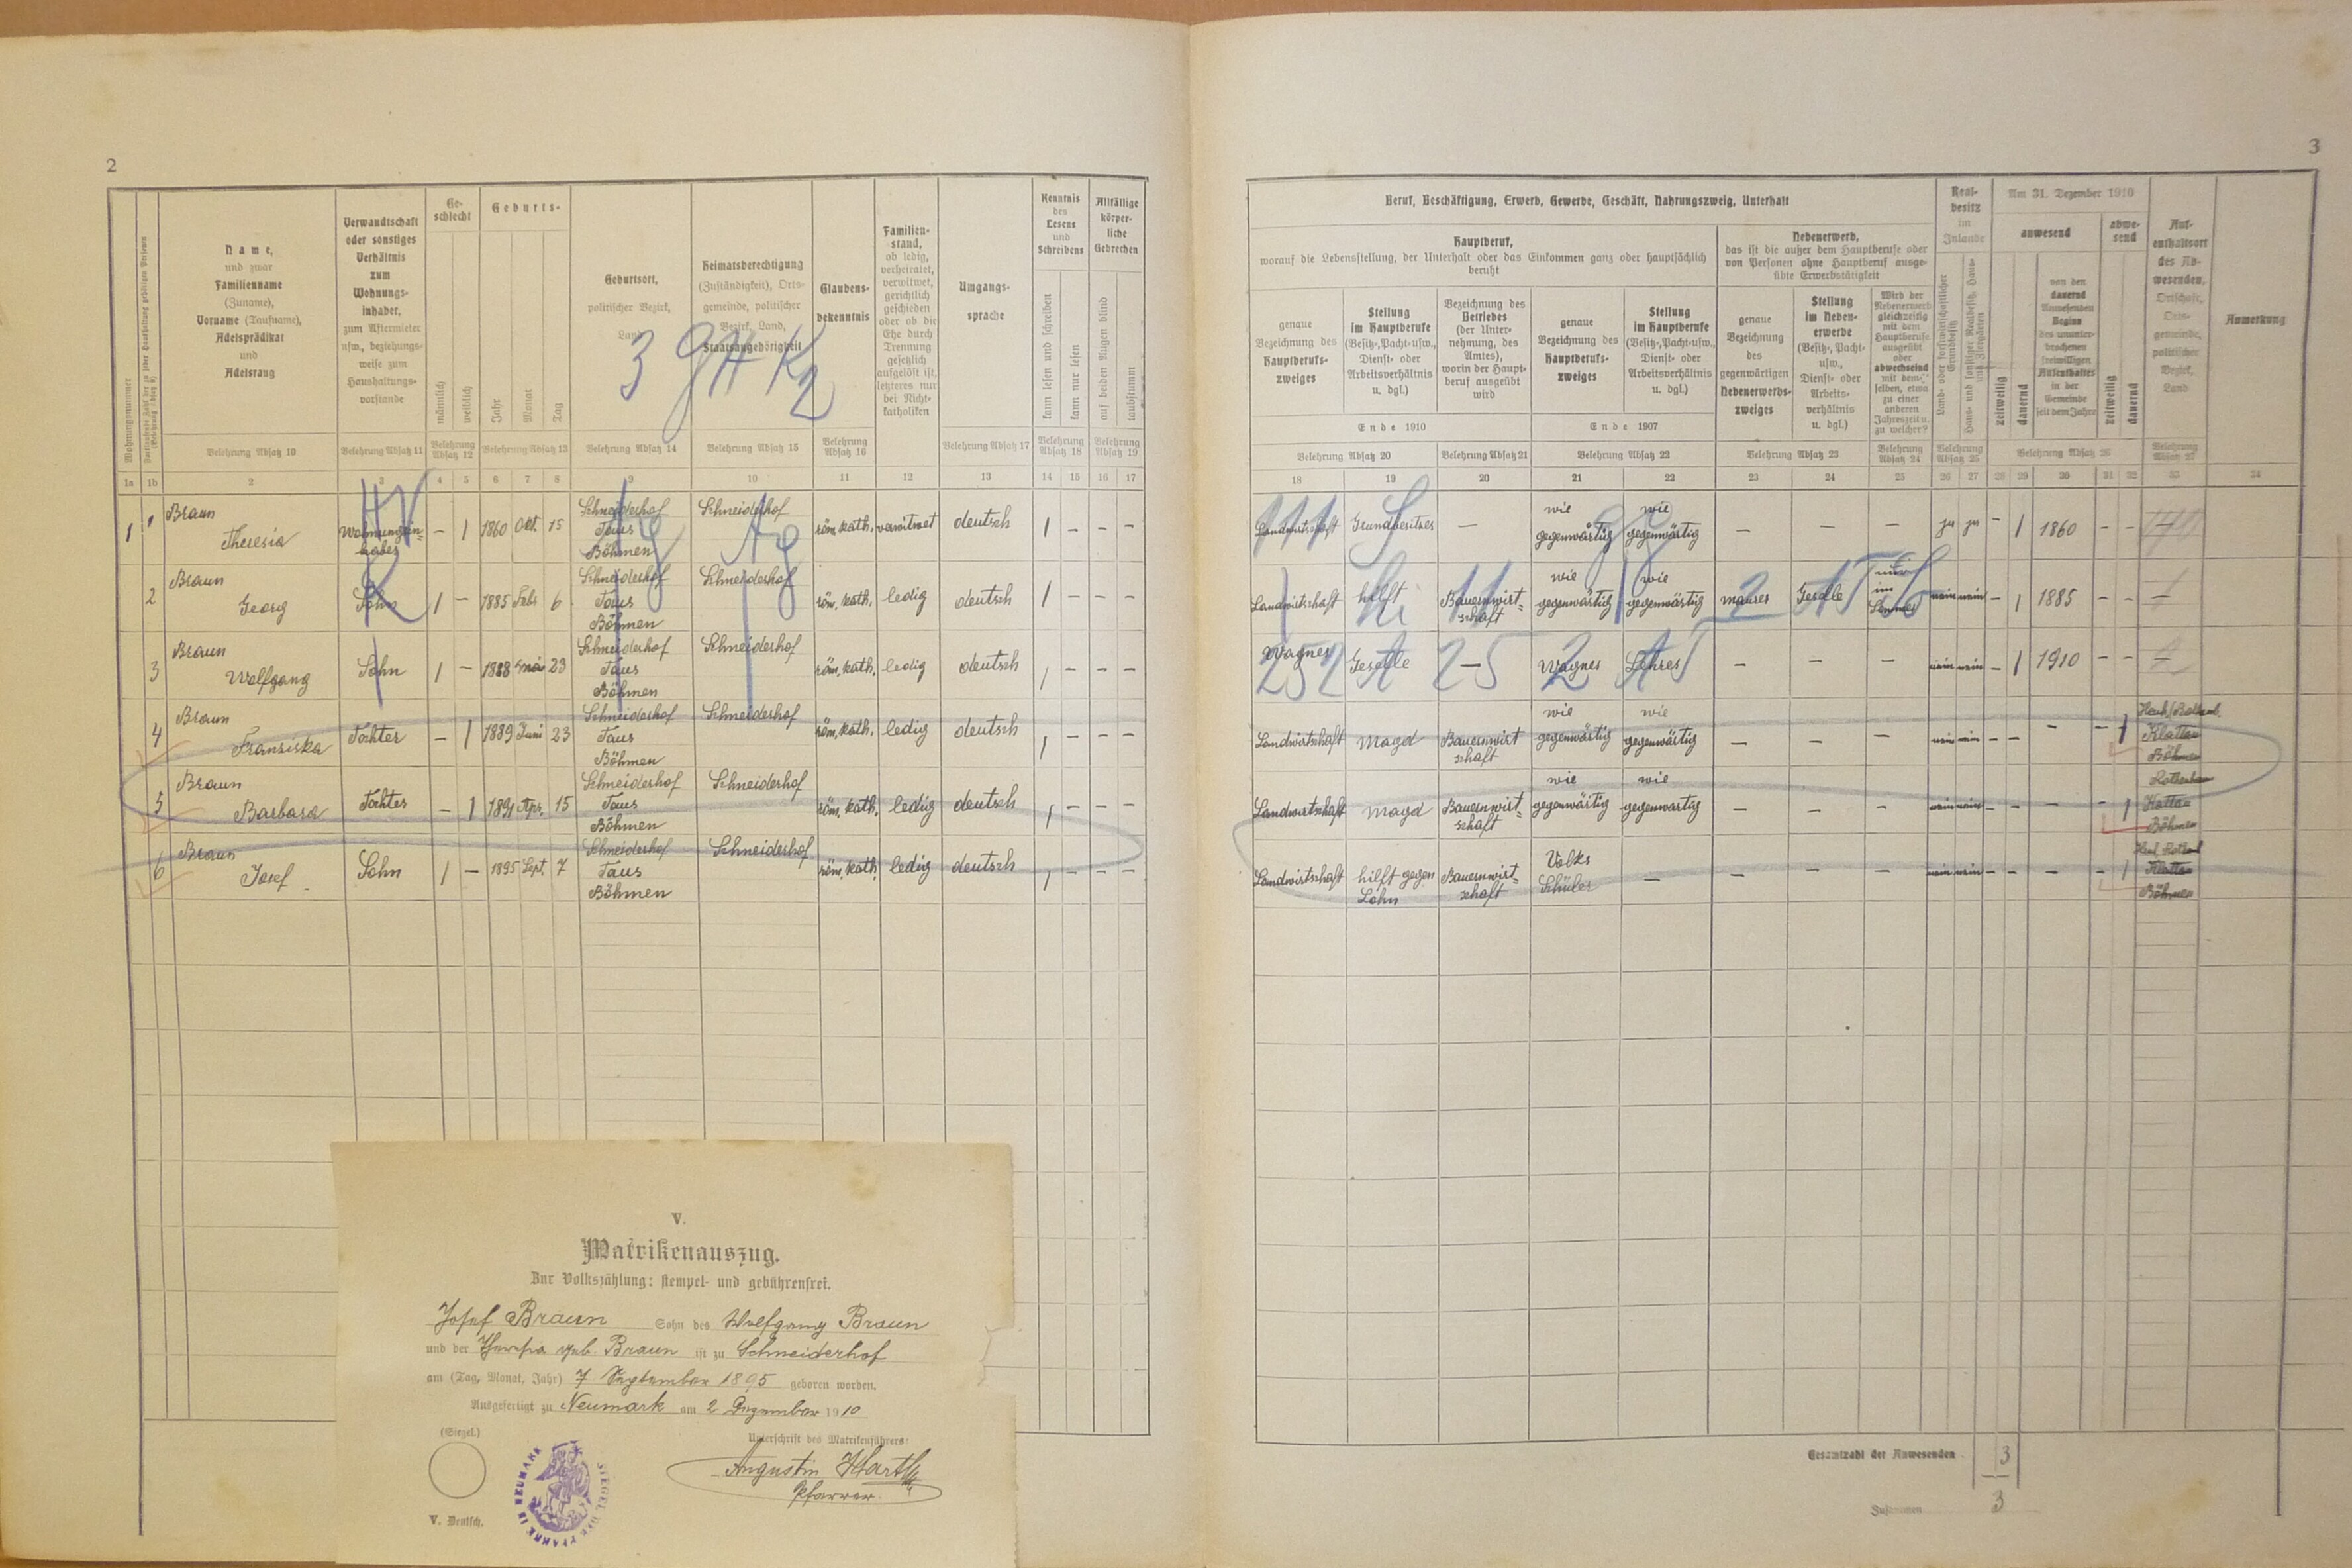 2
Name,
und zwar
Familienname
(Zuname),
Vorname (Taufname),
Adelsprädikat
und
Adelsrang
Verwandtschaft
oder sonstiges
Verhältnis
zum
Wohnungs-
inhaber,
zum Aftermieter
usw., beziehungs-
weise zum
Haushaltungs-
vorstande
Ge-
schlecht
männlich
weiblich
Geburts-
Jahr
Monat
Tag
Geburtsort,
politischer Bezirk,
Land
Heimatsberechtigung
(Zuständigkeit), Orts-
gemeinde, politischer
Bezirk, Land,
Staatsangehörigkeit
Glaubens-
bekenntnis
Familien-
stand,
ob ledig,
verheiratet,
verwitwet,
gerichtlich
geschieden
oder ob die
Ehe durch
Trennung
gesetzlich
aufgelöst ist,
letzteres nur
bei Nicht-
katholiken
Umgangs-
sprache
Kenntnis
des
Lesens
und
Schreibens
kann lesen und schreiben
kann nur lesen
Allfällige
körper-
liche
Gebrechen
auf beiden Augen blind
taubstumm
Wohnungsnummer
Belehrung Absatz 10
Belehrung Absatz 11
Belehrung Absatz 12
Belehrung Absatz 13
Belehrung Absatz 14
Belehrung Absatz 15
Belehrung Absatz 16
Belehrung Absatz 17
Belehrung Absatz 18
Belehrung Absatz 19
1a 1b 2 3 4 5 6 7 8 9 10 11 12 13 14 15 16 17
1 1 Braun Theresia Wohnungsin-haber – 1 1860 Okt. 15 Schneiderhof Taus Böhmen Schneiderhof röm. kath. verwitwet deutsch 1 – – –
2 Braun Georg Sohn 1 – 1885 Feb. 6 Schneiderhof Taus Böhmen Schneiderhof röm. kath. ledig deutsch 1 – – –
3 Braun Wolfgang Sohn 1 – 1888 Mai 23 Schneiderhof Taus Böhmen Schneiderhof röm. kath. ledig deutsch 1 – – –
4 Braun Franziska Tochter – 1 1889 Juni 23 Schneiderhof Taus Böhmen Schneiderhof röm. kath. ledig deutsch 1 – – –
5 Braun Barbara Tochter – 1 1891 Apr. 15 Schneiderhof Taus Böhmen Schneiderhof röm. kath. ledig deutsch 1 – – –
6 Braun Josef Sohn 1 – 1895 Sept. 7 Schneiderhof Taus Böhmen Schneiderhof röm. kath. ledig deutsch 1 – – –
V.
Matrikenauszug.
Zur Volkszählung: stempel- und gebührenfrei.
Josef Braun Sohn des Wolfgang Braun
und der Theresia geb. Braun ist zu Schneiderhof
am (Tag, Monat, Jahr) 7 September 1895 geboren worden.
Ausgefertigt zu Neumark am 2 Dezember 1910
(Siegel.)
Unterschrift des Matrikenführers:
Augustin Hartl
Pfarrer.
SIEGEL DER PFARRE IN NEUMARK
V. Deutsch.
3
Beruf, Beschäftigung, Erwerb, Gewerbe, Geschäft, Nahrungszweig, Unterhalt
Hauptberuf,
worauf die Lebensstellung, der Unterhalt oder das Einkommen ganz oder hauptsächlich
beruht
genaue
Bezeichnung des
Hauptberufs-
zweiges
Stellung
im Hauptberufe
(Besitz-, Pacht- usw.,
Dienst- oder
Arbeitsverhältnis
u. dgl.)
Bezeichnung des
Betriebes
(der Unter-
nehmung, des
Amtes),
worin der Haupt-
beruf ausgeübt
wird
genaue
Bezeichnung des
Hauptberufs-
zweiges
Stellung
im Hauptberufe
(Besitz-, Pacht- usw.,
Dienst- oder
Arbeitsverhältnis
u. dgl.)
Ende 1910
Ende 1907
Nebenerwerb,
das ist die außer dem Hauptberufe oder
von Personen ohne Hauptberuf ausge-
übte Erwerbstätigkeit
genaue
Bezeichnung
des
gegenwärtigen
Nebenerwerbs-
zweiges
Stellung
im Neben-
erwerbe
(Besitz-, Pacht-
usw.,
Dienst- oder
Arbeits-
verhältnis
u. dgl.)
Wird der
Nebenerwerb
gleichzeitig
mit dem
Hauptberufe
ausgeübt
oder
abwechselnd
mit dem-
selben, etwa
zu einer
anderen
Jahreszeit u.
zu welcher?
Real-
besitz
im
Inlande
Am 31. Dezember 1910
anwesend
zeitweilig
dauernd
von den
dauernd
Anwesenden
Beginn
des ununter-
brochenen
freiwilligen
Aufenthaltes
in der
Gemeinde
seit dem Jahre
abwe-
send
zeitweilig
dauernd
Auf-
enthaltsort
des Ab-
wesenden,
Ortschaft,
Orts-
gemeinde,
politischer
Bezirk,
Land
Anmerkung
Belehrung Absatz 20
Belehrung Absatz 21
Belehrung Absatz 22
Belehrung Absatz 23
Belehrung Absatz 24
Belehrung Absatz 25
Belehrung Absatz 26
Belehrung Absatz 27
18 19 20 21 22 23 24 25 26 27 28 29 30 31 32 33 34
Landwirtschaft Grundbesitzer – wie gegenwärtig wie gegenwärtig – – – ja ja – 1 1860 – –
Landwirtschaft hilft Bauernwirt-schaft wie gegenwärtig wie gegenwärtig Maurer Geselle nur im Sommer nein nein – 1 1885 – – –
Wagner Geselle – Wagner Lehrer – – – nein nein – 1 1910 – – –
Landwirtschaft Magd Bauernwirtschaft wie gegenwärtig wie gegenwärtig – – – nein nein – – – – 1 Klattau Böhmen
Landwirtschaft Magd Bauernwirt-schaft wie gegenwärtig wie gegenwärtig – – – nein nein – – – – 1 Rothenbaum Klattau Böhmen
Landwirtschaft hilft gegen Lohn Bauernwirt-schaft Volks Schüler – – – – nein nein – – – – 1 Klattau Böhmen
Gesamtzahl der Anwesenden 3
Zusammen 3